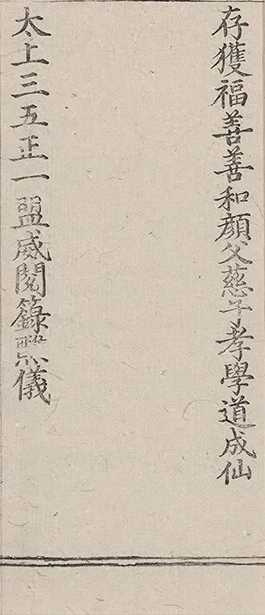 存獲福善善和顔父慈子孝學道成仙
太上三五正一盟威閱籙醮儀